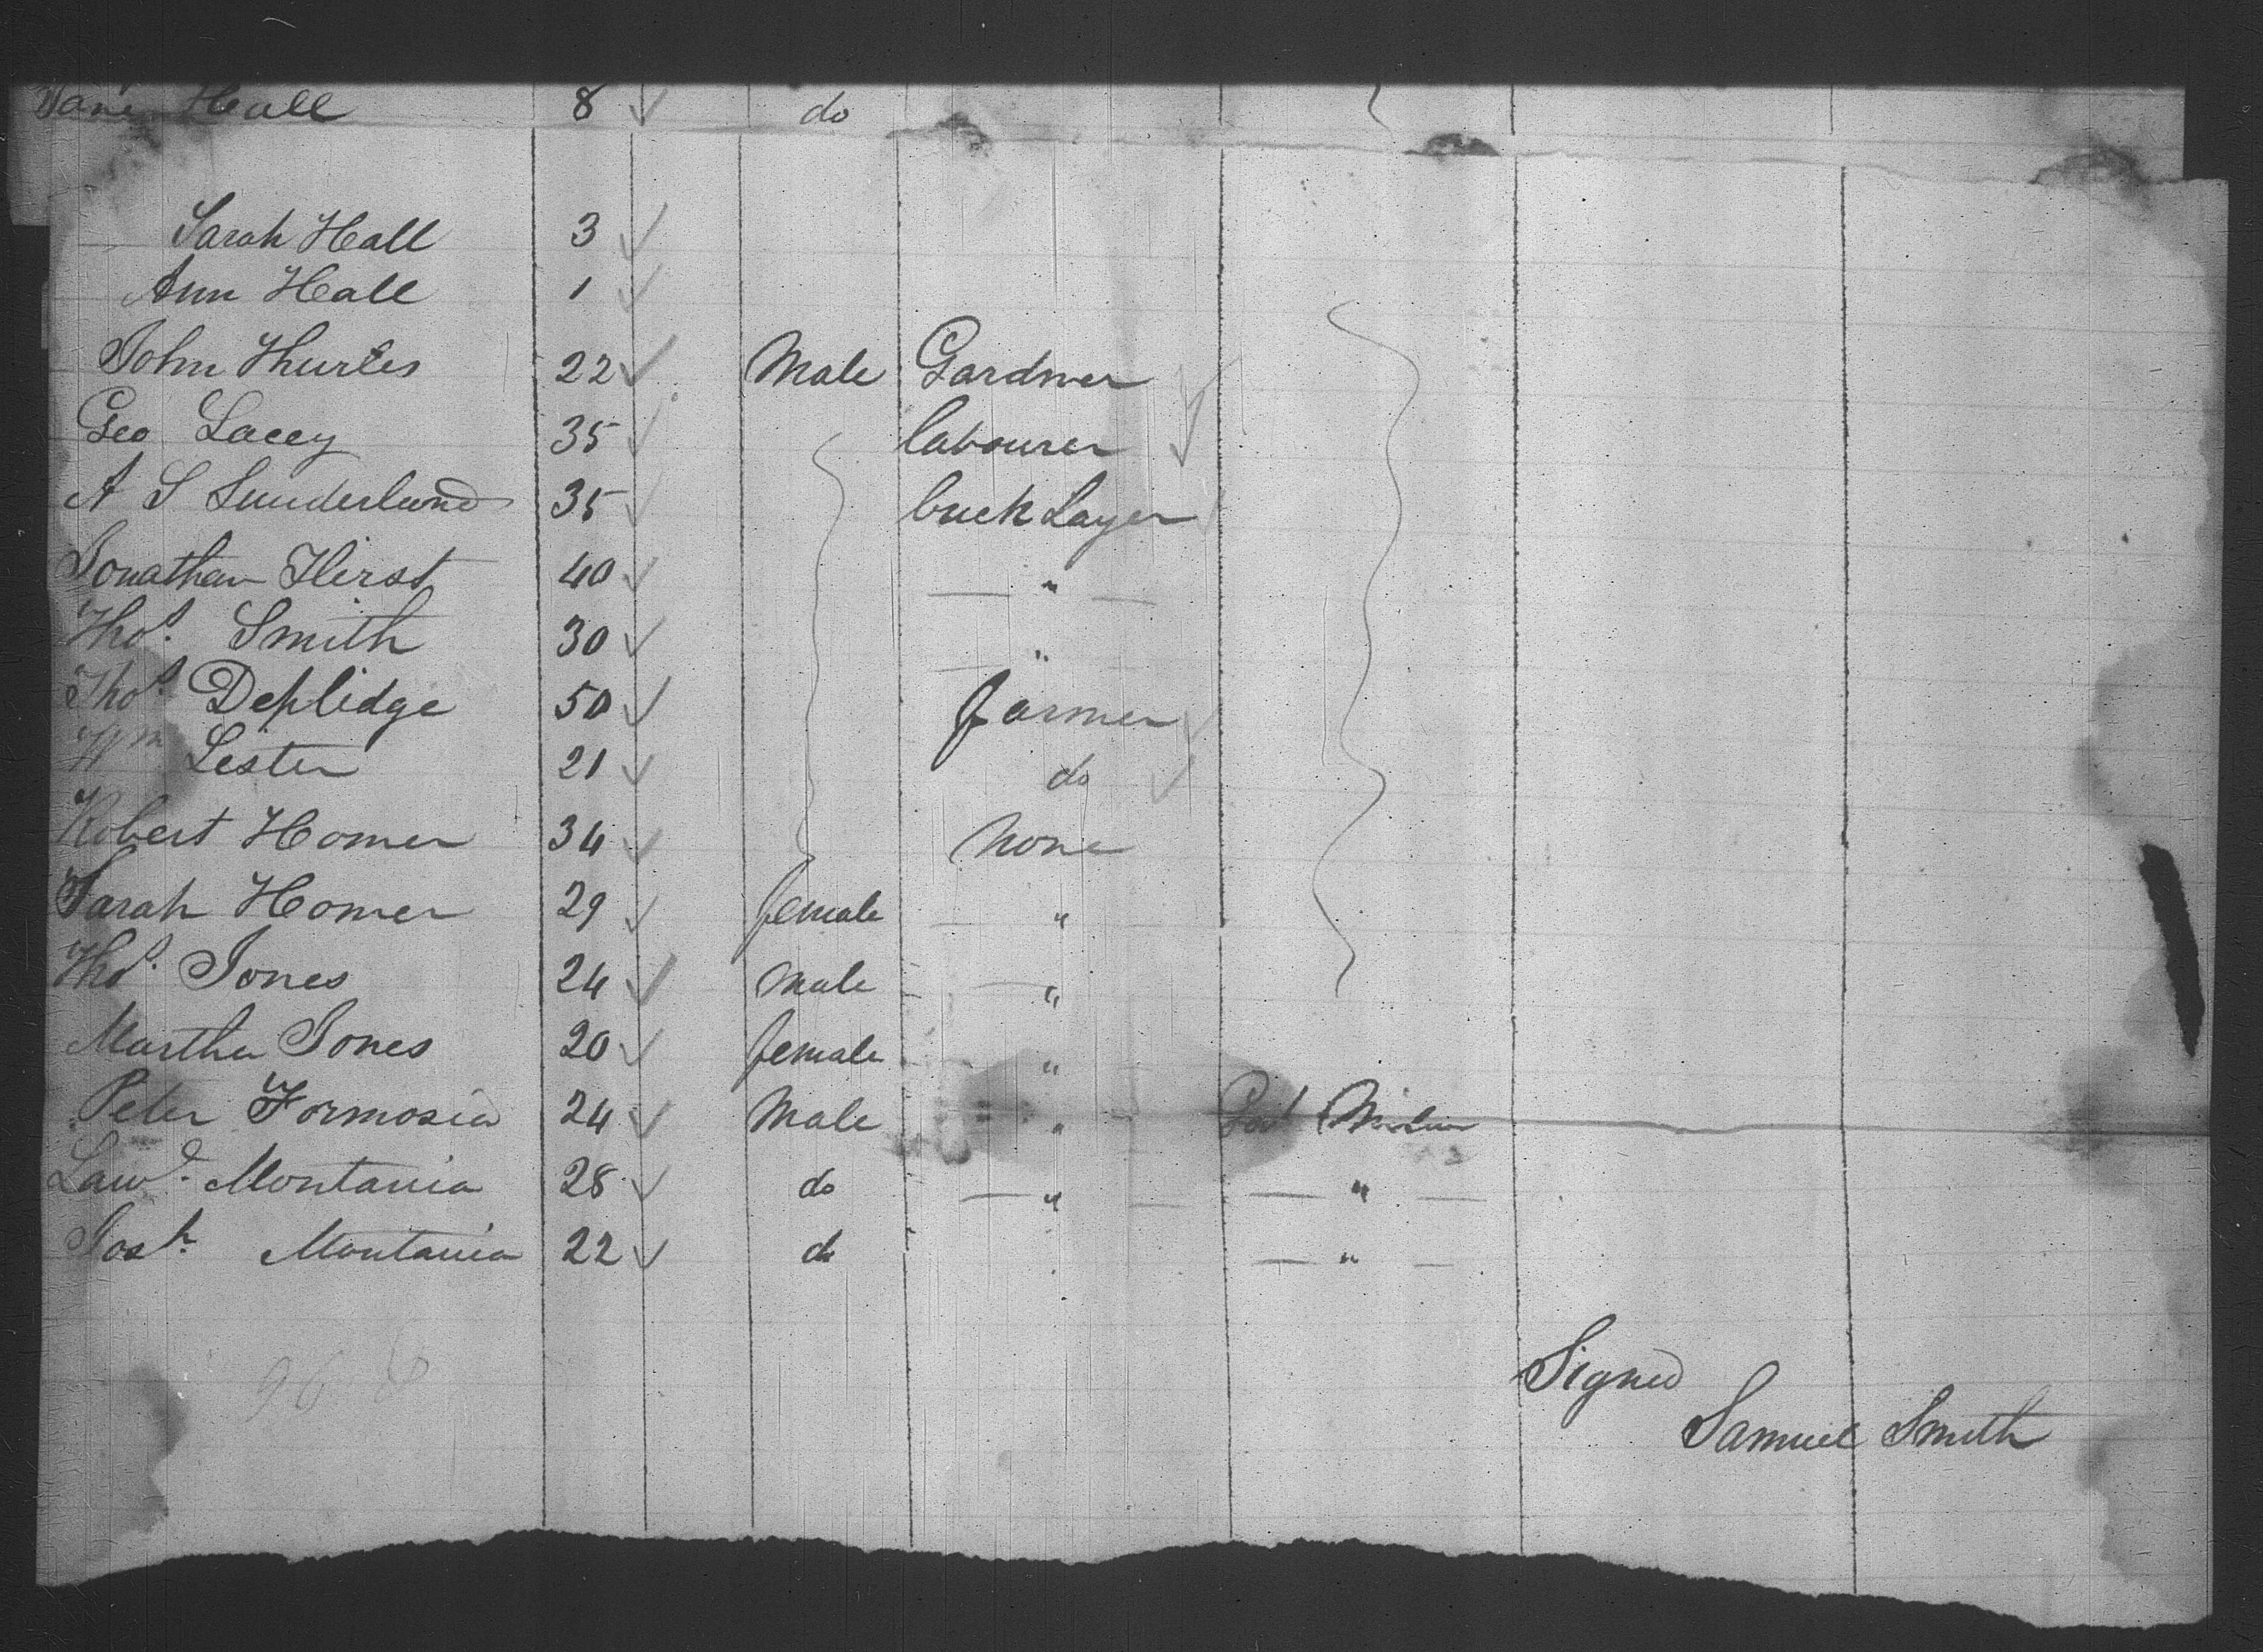 Jane Hall 8 do
Sarah Hall 3
Ann Hall 1
John Thurles 22 Male Gardner
Geo Lacey 35 labourer
A S Sunderland 35 brick Layer
Jonathan Hirst 40 — " —
Thos. Smith 30 — "
Thos. Deplidge 50 farmer
Wm Lester 21 do
Robert Homer 34 None
Sarah Homer 29 female — "
Thos. Jones 24 Male — "
Martha Jones 20 female "
Peter Formosia 24 Male "
Lawd. Montania 28 do — " — — " —
Josh. Montania 22 do — " —
96
Signed
Samuel Smith